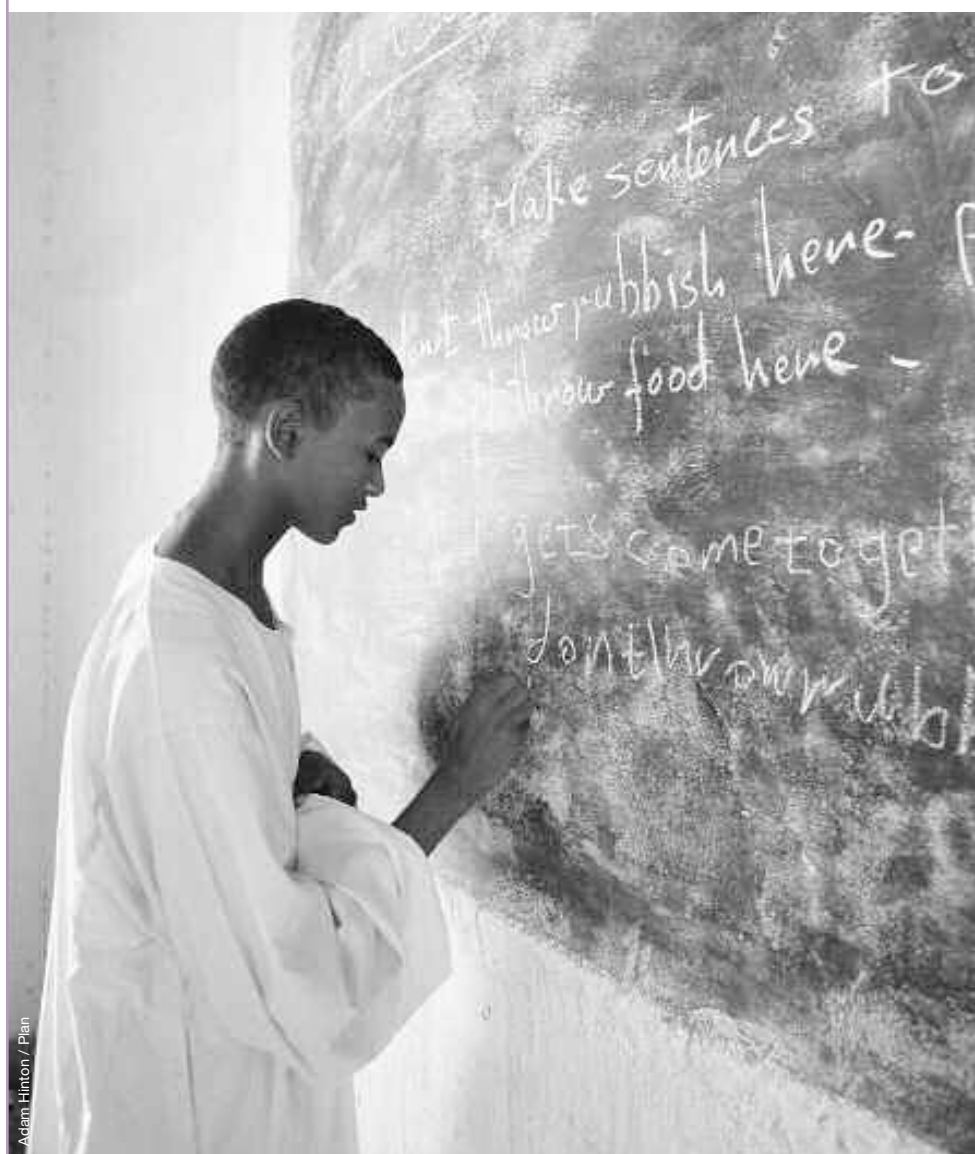 Make sentences to
throw rubbish here-
throw food here -
get's come to get
don throw rubbh
Adam Hinton / Plan